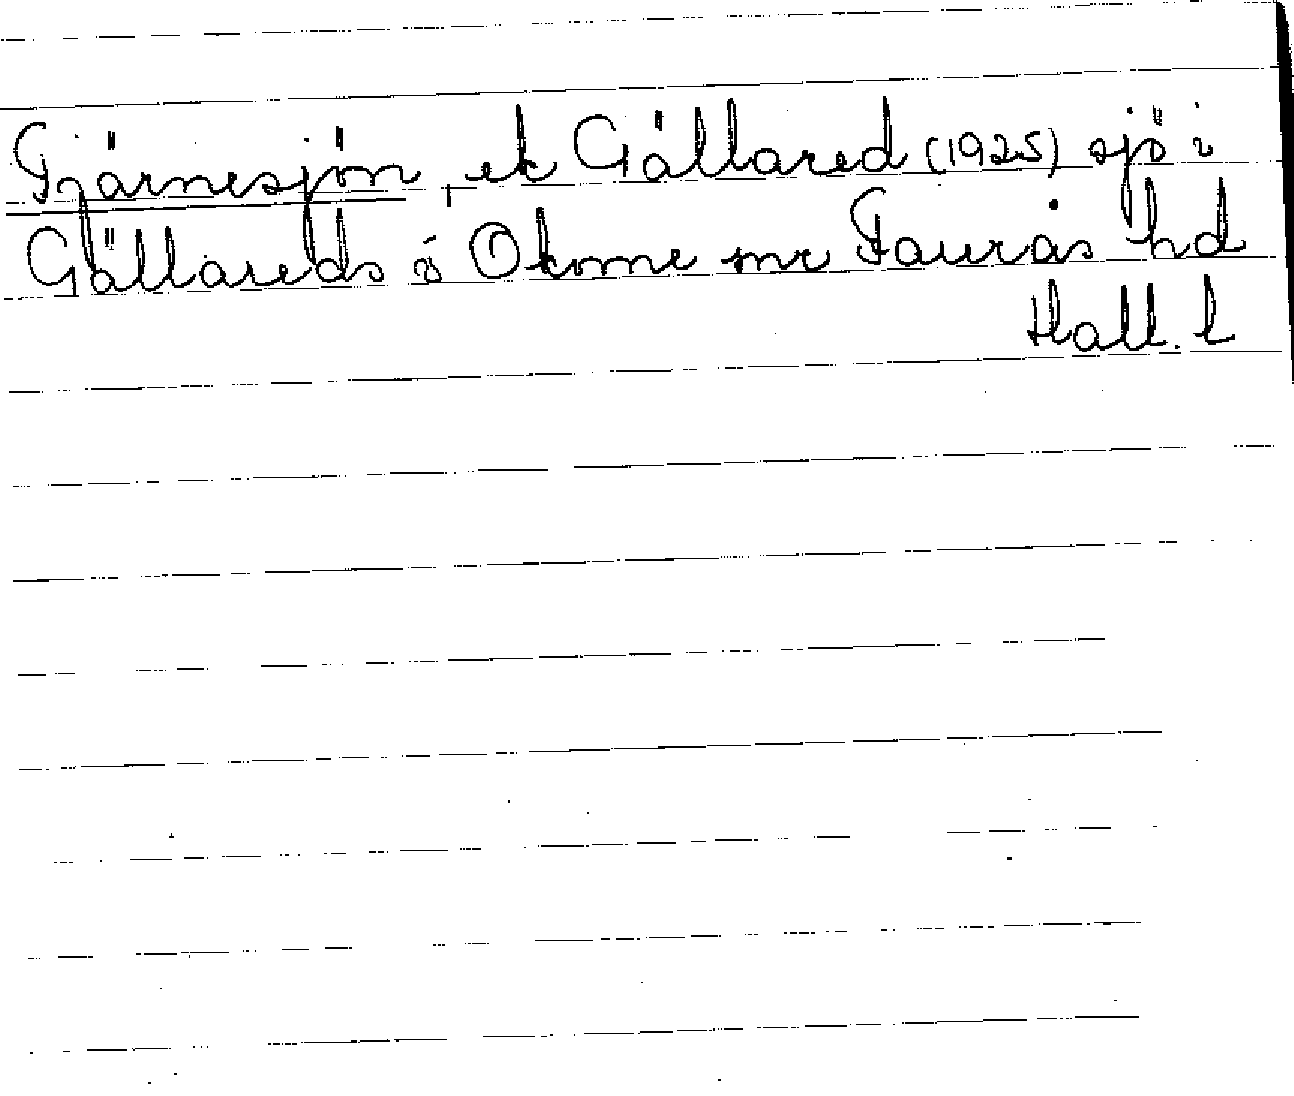 Fjärnesjön, ek Gällared (1925) sjö i
Gällareds o Okome snr Faurås hd
Hall. l